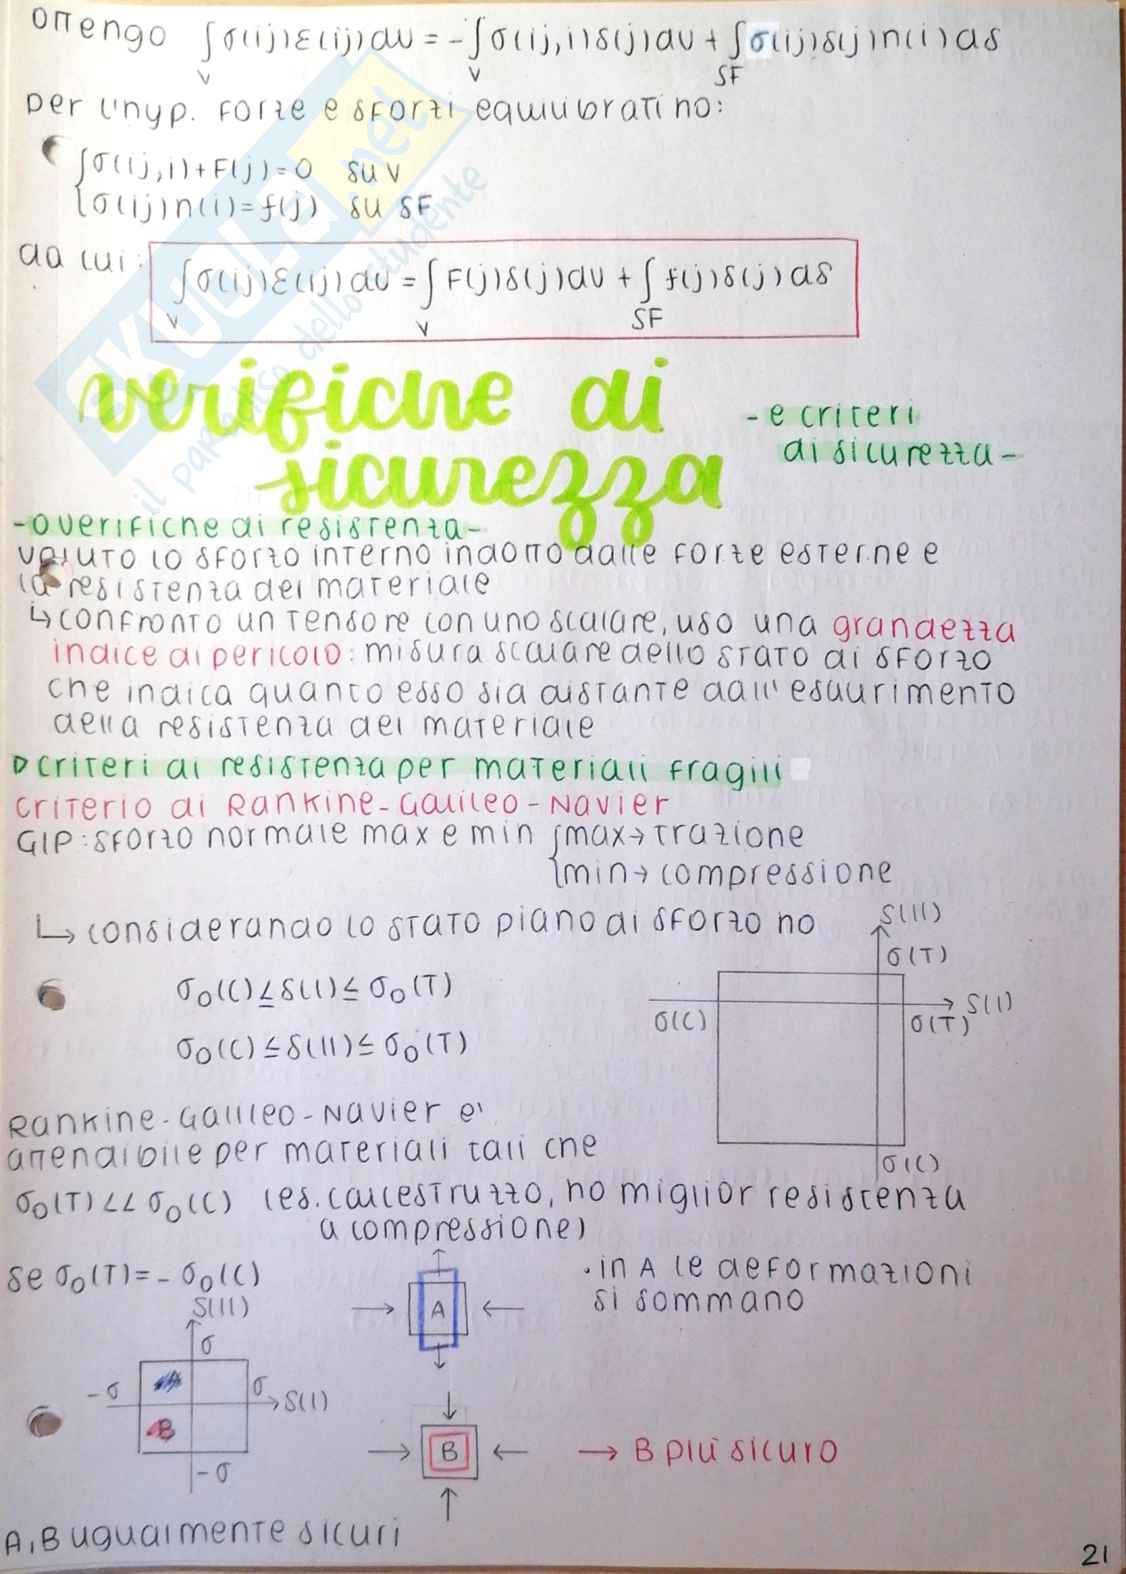 OTTENGO ∫V σ(ij)ε(ij)dV = -∫V σ(ij,i)s(j)dV + ∫SF σ(ij)s(j)n(i)ds
per l'hyp. forze e sforzi equilibrati ho:
{σ(ij,i)+F(j)=0 su V
{σ(ij)n(i)=f(j) su SF
da cui: ∫V σ(ij)ε(ij)dV = ∫V F(j)s(j)dV + ∫SF f(j)s(j)ds
verifiche di sicurezza
- e criteri
di sicurezza -
- o verifiche di resistenza -
valuto lo sforzo interno indotto dalle forze esterne e
la resistenza del materiale
↳ confronto un tensore con uno scalare, uso una grandezza
indice di pericolo: misura scalare dello stato di sforzo
che indica quanto esso sia distante dall'esaurimento
della resistenza del materiale
▷ criteri di resistenza per materiali fragili
criterio di Rankine-Galileo-Navier
GIP: sforzo normale max e min {max → trazione
{min → compressione
↳ considerando lo stato piano di sforzo ho
σ0(C) ≤ s(I) ≤ σ0(T)
σ0(C) ≤ s(II) ≤ σ0(T)
s(II)
σ(T)
s(I)
σ(C)
σ(T)
σ(C)
Rankine-Galileo-Navier e'
attendibile per materiali tali che
σ0(T) << σ0(C) (es. calcestruzzo, ho miglior resistenza
a compressione)
se σ0(T) = -σ0(C)
s(II)
σ
-σ
σ
s(I)
A
B
-σ
A
· in A le deformazioni
si sommano
B
→ B più sicuro
A, B ugualmente sicuri
21
SKUOLA.net
il paradiso dello studente